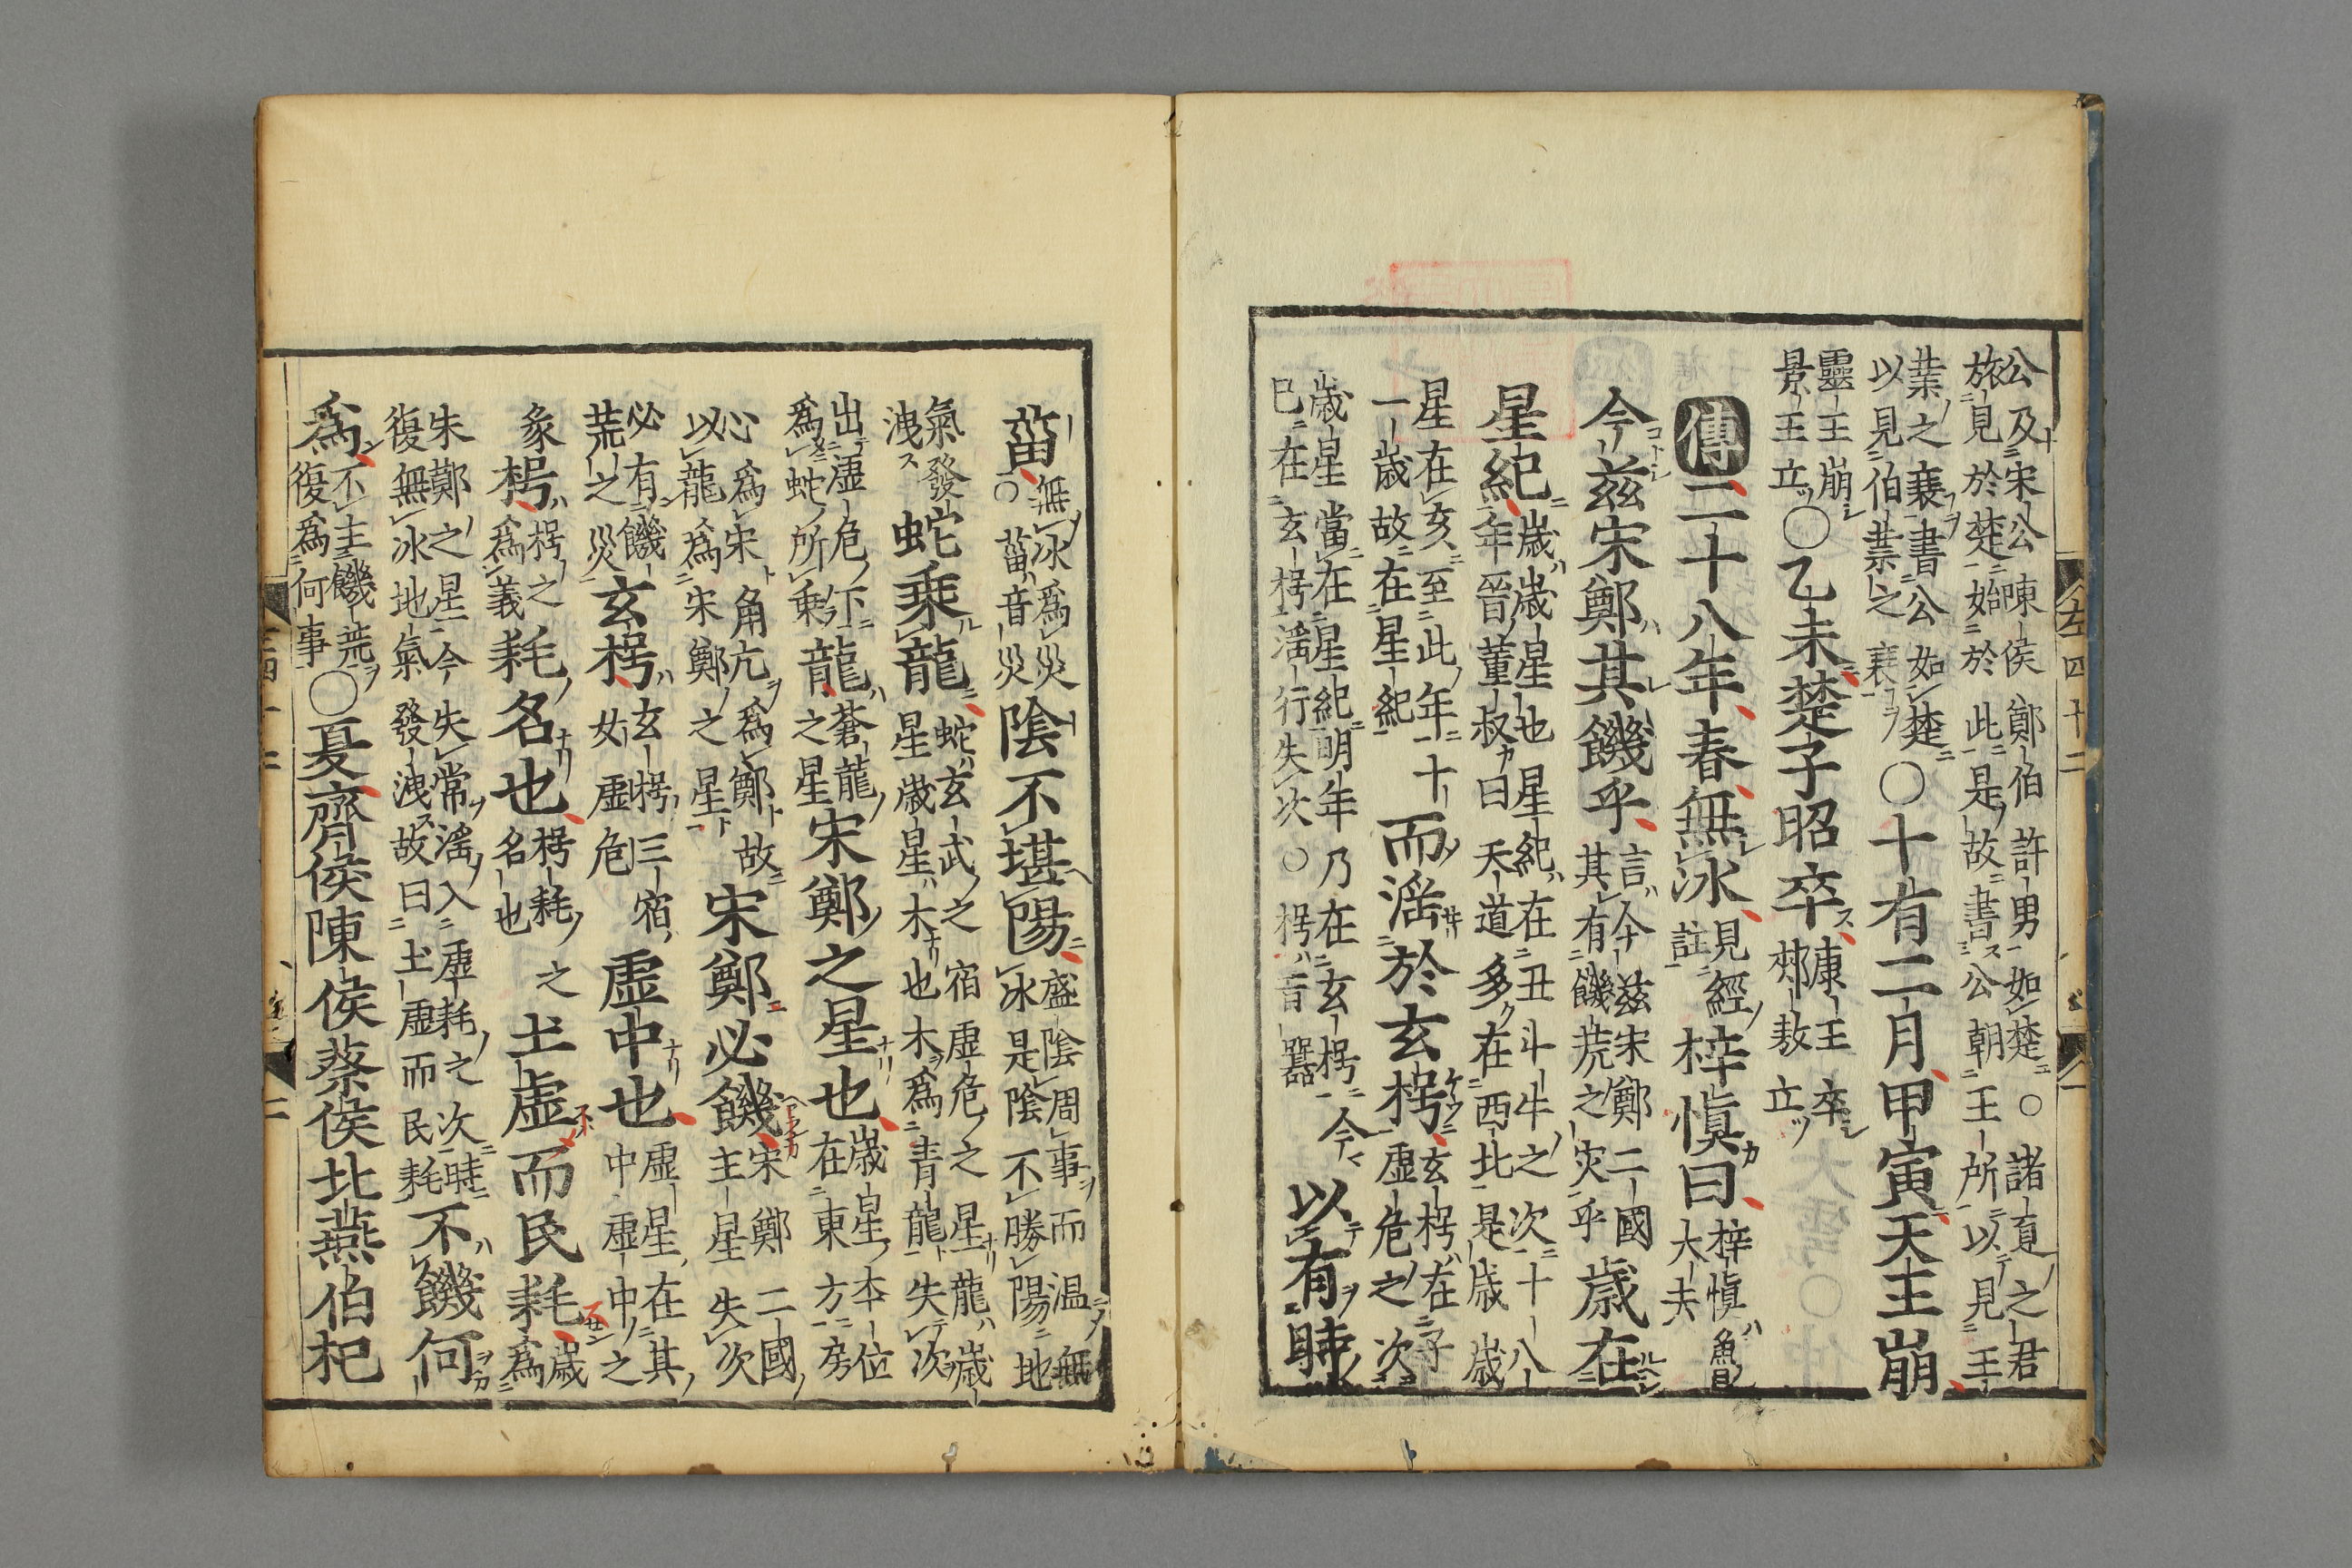 公及宋公陳侯鄭伯許男如楚○諸夏之君旅見於楚始於此是故書公朝王所以見王
業之衰書公如楚以見伯業之衰○十有二月甲寅天王崩
靈王崩景王立○乙未楚子昭卒康王卒郟敖立
傳二十八年春無冰見經註梓慎曰梓慎魯大夫
今茲宋鄭其饑乎言今茲宋鄭二國其有饑荒之災乎歲在
星紀歲歲星也星紀在丑斗牛之次十八年晉董叔曰天道多在西北是歲歲
星在亥至此年十一歲故在星紀而淫於玄枵玄枵在子虛危之次
歲星當在星紀明年乃在玄枵今已在玄枵淫行失次○枵音囂以有時
菑無冰為災○菑音災陰不堪陽盛陰周事而温無冰是陰不勝陽地
氣發洩蛇乘龍蛇玄武之宿虛危之星龍歲星歲星木也木為青龍失次
出虛危下為蛇所乘龍蒼龍之星宋鄭之星也歲星本位在東方房
心為宋角亢為鄭故以龍為宋鄭之星宋鄭必饑宋鄭二國主星失次
必有饑荒之災玄枵玄枵三宿女虛危虛中也虛星在其中虛中之
象枵枵之為義耗名也枵耗之名也土虛而民耗歲為
宋鄭之星今失常淫入虛耗之次時復無冰地氣發洩故曰土虛而民耗不饑何
為不主饑荒復為何事○夏齊侯陳侯蔡侯北燕伯杞